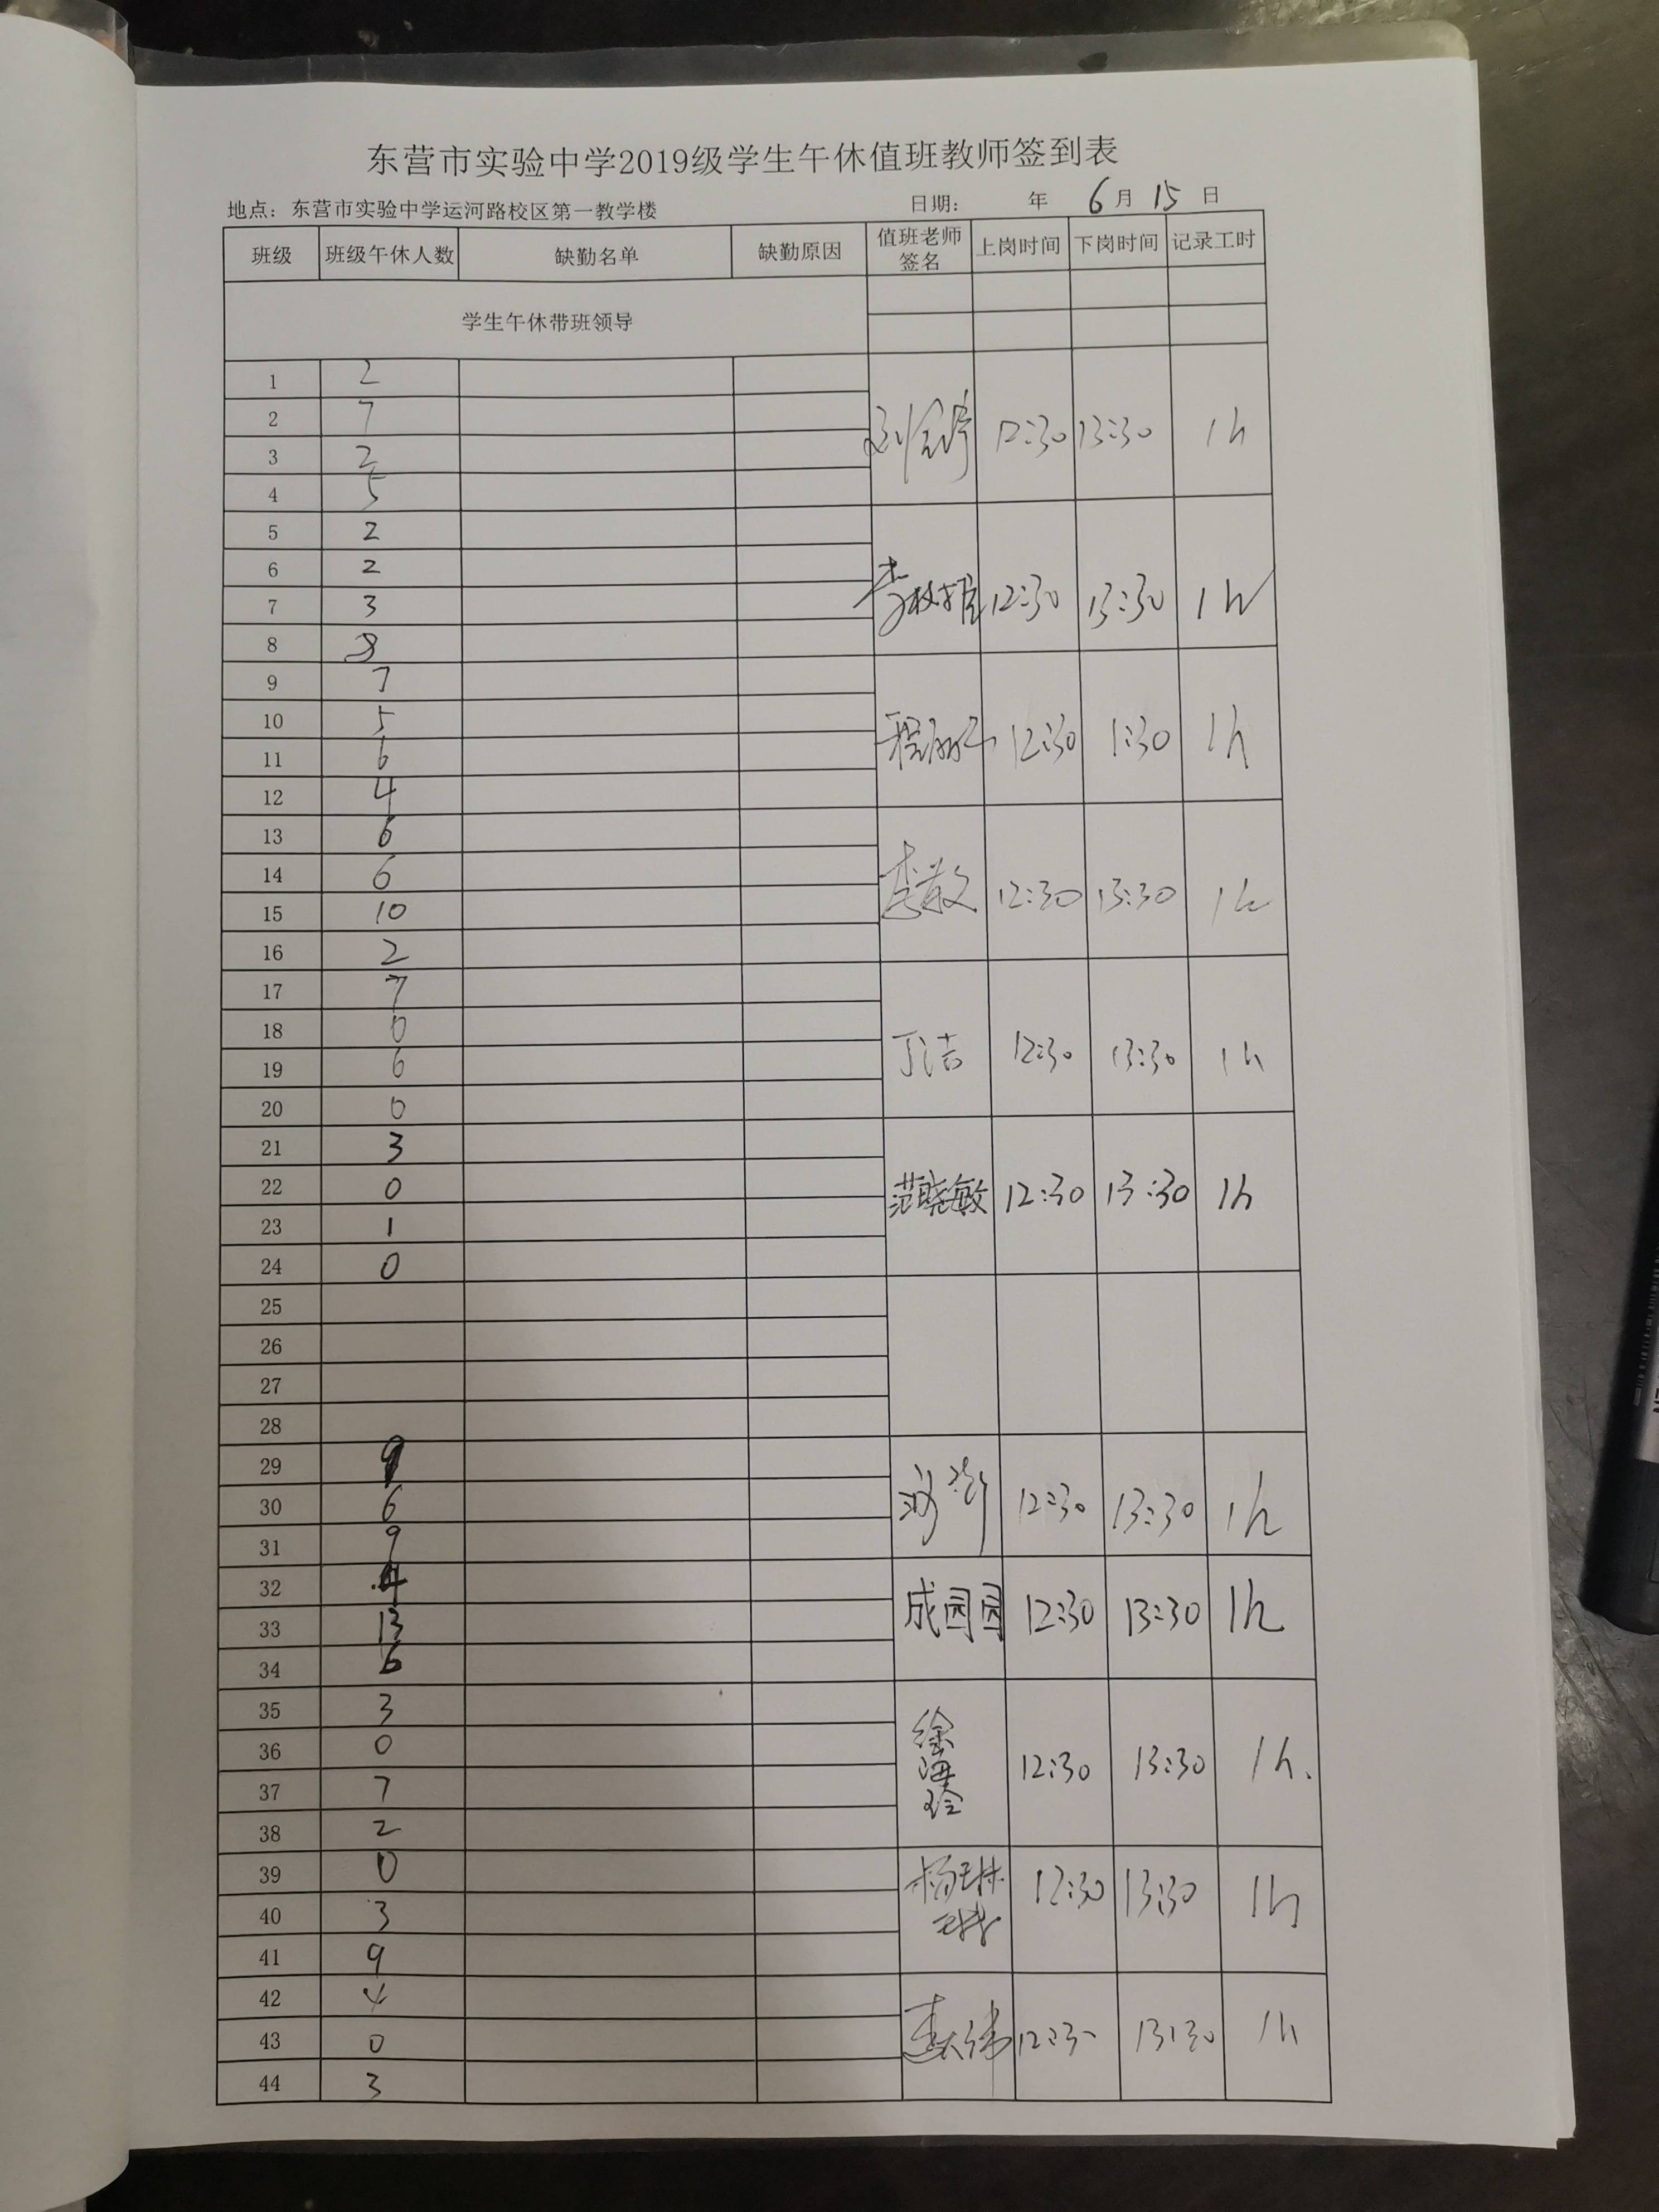 东营市实验中学2019级学生午休值班教师签到表
地点：东营市实验中学运河路校区第一教学楼 日期： 年 6月 15 日
班级 班级午休人数 缺勤名单 缺勤原因 值班老师签名 上岗时间 下岗时间 记录工时
学生午休带班领导
1 2
2 7
3 2
4 5
12:30 13:30 1h
5 2
6 2
7 3
8 8
12:30 13:30 1h
9 7
10 5
11 6
12 4
12:30 1:30 1h
13 6
14 6
15 10
16 2
李敏 12:30 13:30 1h
17 7
18 0
19 6
20 0
丁洁 12:30 13:30 1h
21 3
22 0
23 1
24 0
范晓敏 12:30 13:30 1h
25
26
27
28
29 9
30 6
31 9
12:30 13:30 1h
32 4
33 13
34 6
成园园 12:30 13:30 1h
35 3
36 0
37 7
38 2
徐海玲 12:30 13:30 1h.
39 0
40 3
41 9
杨琳琳 12:30 13:30 1h
42 4
43 0
44 3
12:30 13:30 1h